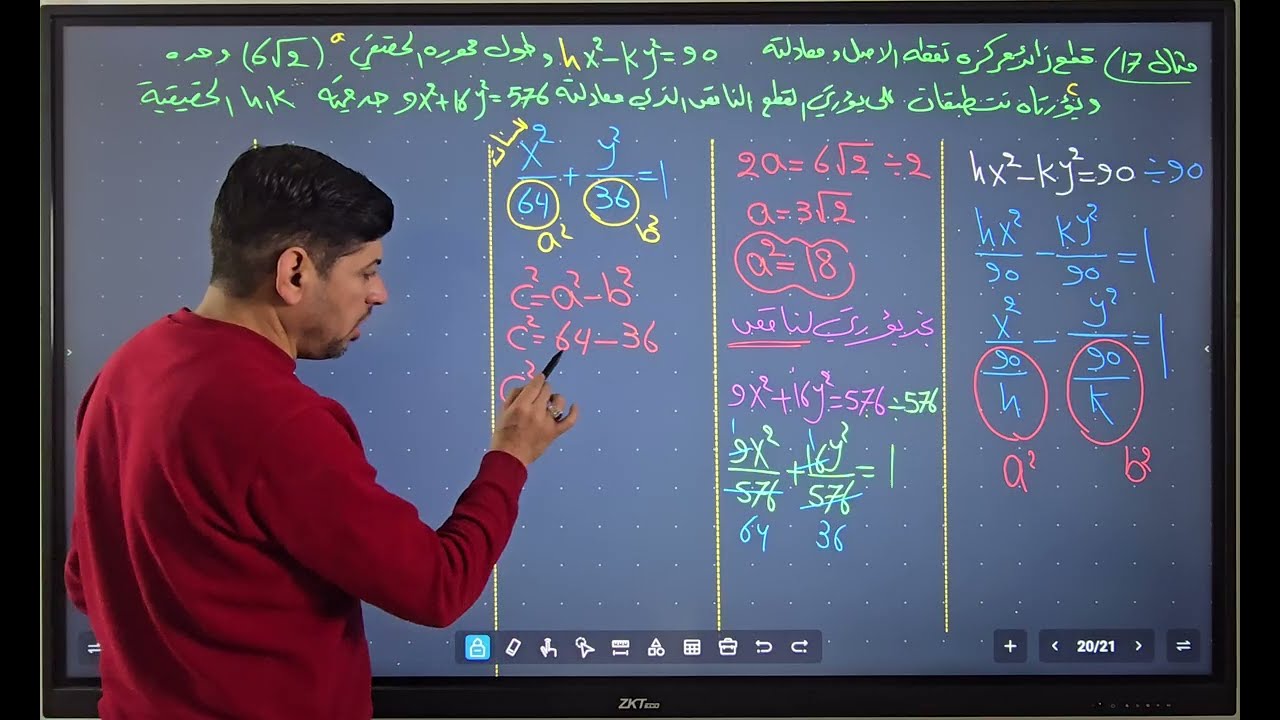 مثال 17) قطع زائد مركزه نقطة الاصل ومعادلته hx²-ky²=90 وطول محوره الحقيقي (6√2) وحده
a
c
وبؤرتاه تنطبقان على بؤرتي لقطع الناقص الذي معادلته 9x²+16y²=576 جد قيمة h,k الحقيقية
hx²-ky²=90÷90
hx²/90 - ky²/90 = 1
x²/(90/h) - y²/(90/k) = 1
a² b²
2a=6√2÷2
a=3√2
a²=18
نجد بؤرتي لناقص
9x²+16y²=576÷576
9x²/576 + 16y²/576 = 1
1 1
64 36
x²/64 + y²/36 = 1
a² b²
c²=a²-b²
c²=64-36
20/21
ZKTeco